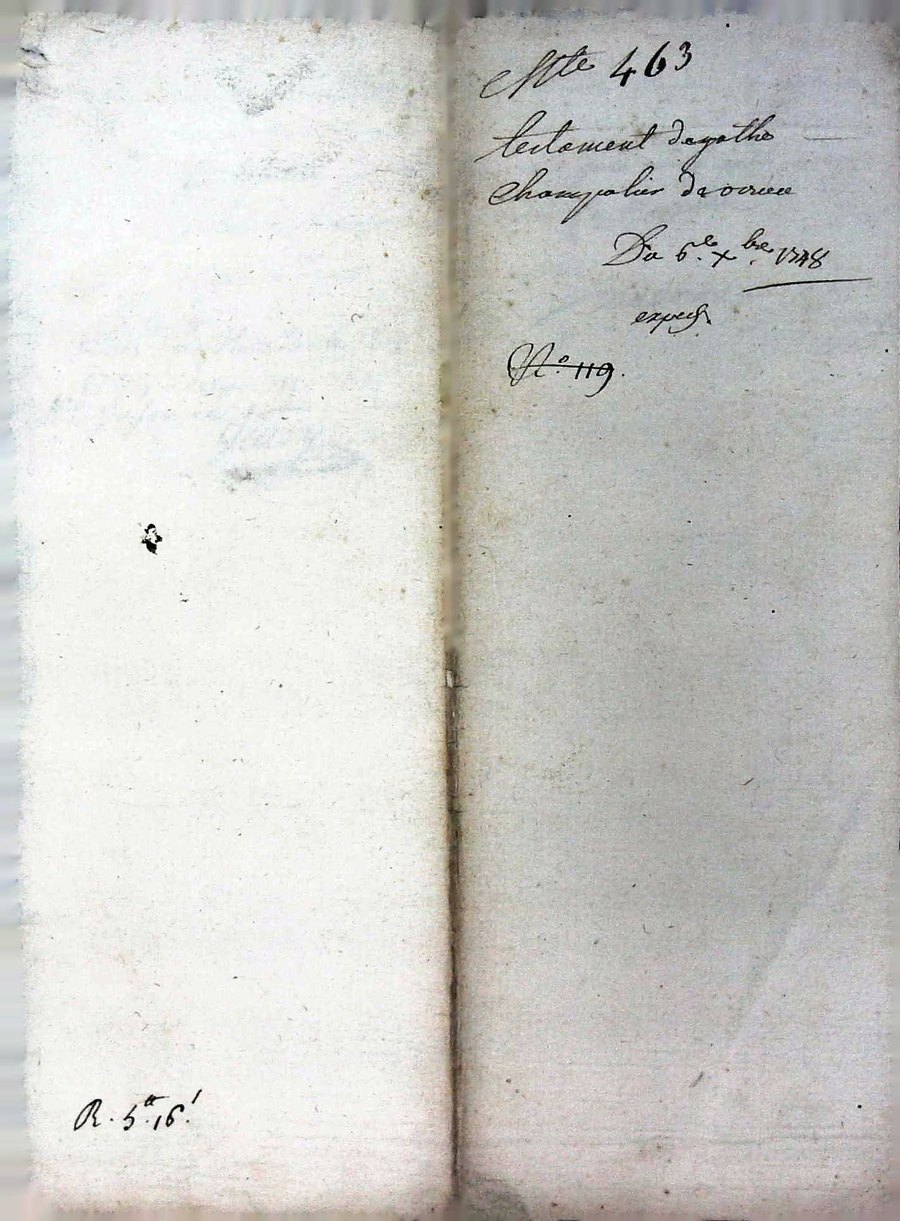 Nte 463
testament dagathe
champalier de
Du 6e. xbre. 1748
exped.
N.o 119.
R. 5tt. 16.s